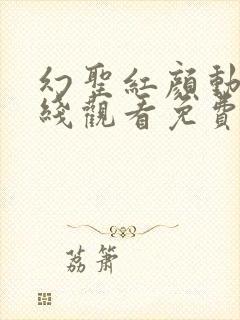 幻聖紅顔動
綫觀看免費
荔簫